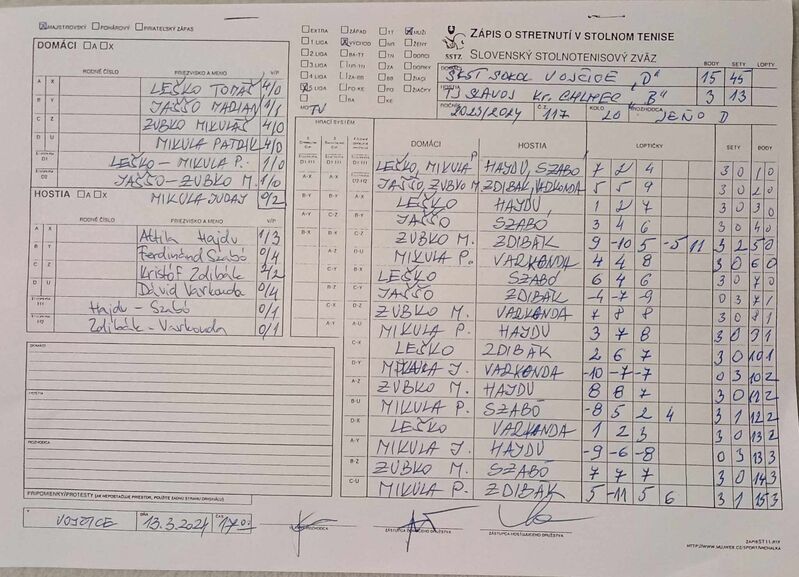 MAJSTROVSKÝ POHÁROVÝ PRIATEĽSKÝ ZÁPAS
EXTRA ZÁPAD 1T MUŽI
1 LIGA VÝCHOD NR ŽENY
2.LIGA BA-TT TN DORCI
3.LIGA ZA DORKY
4 LIGA ZA-BB BB ŽIACI
5 LIGA PO-KE PO ŽIAČKY
BA KE
MO TV
SSTZ
ZÁPIS O STRETNUTÍ V STOLNOM TENISE
SLOVENSKÝ STOLNOTENISOVÝ ZVÄZ
BODY SETY LOPTY
ŠKST SOKOL VOJČICE "D" 15 45
HOSTIA TJ SLAVOJ Kr. CHLMEC "B" 3 13
ROČNÍK 2023/2024 Č.Z. 117 KOLO 20 ROZHODCA JEŇO D
DOMÁCI A X
RODNÉ ČÍSLO PRIEZVISKO A MENO V/P
A X LEŠKO TOMÁŠ 4/0
B Y JAŠŠO MARIAN 1/1
C Z ZUBKO MIKULÁŠ 4/0
D U MIKULA PATRIK 4/0
D1 LEŠKO - MIKULA P. 1/0
D2 JAŠŠO - ZUBKO M. 1/0
MIKULA JURAJ 0/2
HOSTIA A X
RODNÉ ČÍSLO PRIEZVISKO A MENO V/P
A X Attila Hajdu 1/3
B Y Ferdinand Szabó 0/4
C Z Kristóf Zdibák 2/2
D U Dávid Varkonda 0/4
Hajdu - Szabó 0/1
Zdibák - Varkonda 0/1
HRACÍ SYSTÉM DOMÁCI HOSTIA LOPTIČKY SETY BODY
LEŠKO, MIKULA P HAYDU, SZABO 7 2 4 3 0 1 0
JAŠŠO, ZUBKO M ZDIBÁK, VARKONDA 5 5 9 3 0 2 0
LEŠKO HAYDU 1 2 7 3 0 3 0
JAŠŠO SZABO 3 4 6 3 0 4 0
ZUBKO M. ZDIBÁK 9 -10 5 -5 11 3 2 5 0
MIKULA P. VARKONDA 4 4 8 3 0 6 0
LEŠKO SZABO 6 4 6 3 0 7 0
JAŠŠO ZDIBAK -4 -7 -9 0 3 7 1
ZUBKO M. VARKONDA 7 8 8 3 0 8 1
MIKULA P. HAYDU 3 7 8 3 0 9 1
C-X LEŠKO ZDIBÁK 2 6 7 3 0 10 1
D-Y MIKULA J. VARKONDA -10 -7 -7 0 3 10 2
A-Z ZUBKO M. HAYDU 8 8 7 3 0 11 2
B-U MIKULA P. SZABÓ -8 5 2 4 3 1 12 2
D-X LEŠKO VARKONDA 1 2 3 3 0 13 2
A-Y MIKULA J. HAYDU -9 -6 -8 0 3 13 3
B-Z ZUBKO M. SZABÓ 7 7 7 3 0 14 3
C-U MIKULA P. ZDIBÁK 5 -11 5 6 3 1 15 3
DOMÁCI
HOSTIA
ROZHODCA
PRIPOMIENKY/PROTESTY (AK NEPOSTAČUJE PRIESTOR, POUŽITE ZADNÚ STRANU ORIGINÁLU)
V VOJČICE DŇA 13.3.2024 ČAS 17:00
ROZHODCA
ZÁSTUPCA DOMÁCEHO DRUŽSTVA
ZÁSTUPCA HOSŤUJÚCEHO DRUŽSTVA
ZAPISST11.RTF